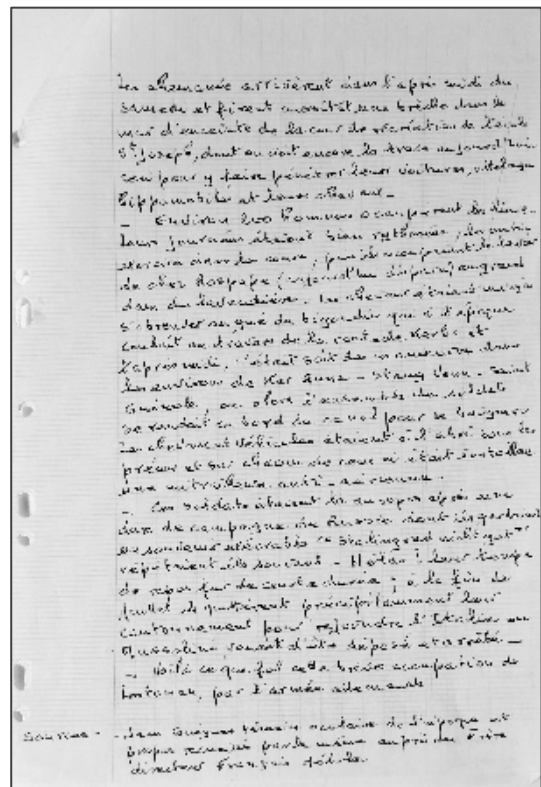 Les allemands arrivèrent dans l'après midi du
samedi et firent aussitôt une brèche dans le
mur d'enceinte de la cour de récréation de l'école
St Joseph, dont on voit encore la trace aujourd'hui
pour y faire pénétrer leurs voitures, attelages
hippomobiles et leurs chevaux -
- Environ 200 hommes occupèrent les lieux -
leurs journées étaient bien rythmées, les matins
exercice dans la cour, puis ils occupaient le lavoir
de chez Rospape (aujourd'hui disparu) au grand
dam des lavandières. Les chevaux étaient
s'abreuver au gué du qui à l'époque
coulait au travers de la route de et
l'après midi, c'était soit de la manœuvre dans
les environs de Ker Anna - Stang Venn - Saint
Guénolé, ou alors l'ensemble des soldats
se rendait en bord du canal pour se baigner
Les et véhicules étaient à l'abri sous les
préaux et sur chacun de ceux ci était installée
une mitrailleuse anti-aérienne.
- Ces soldats étaient là au repos après une
dure campagne de Russie dont ils gardaient
un souvenir "Stalingrad nicht gut"
répétaient ils souvent - Hélas ! leur temps
de repos fut de courte durée ; à la fin de
Juillet ils quittèrent précipitamment leur
cantonnement pour rejoindre l'Italie où
Mussolini venait d'être déposé et arrêté -
- Voilà ce que fut cette brève occupation de
par l'armée allemande
Sources - Jean Guiguen témoin, scolaire de l'époque et
propos recueillis par le même auprès du Frère
directeur François